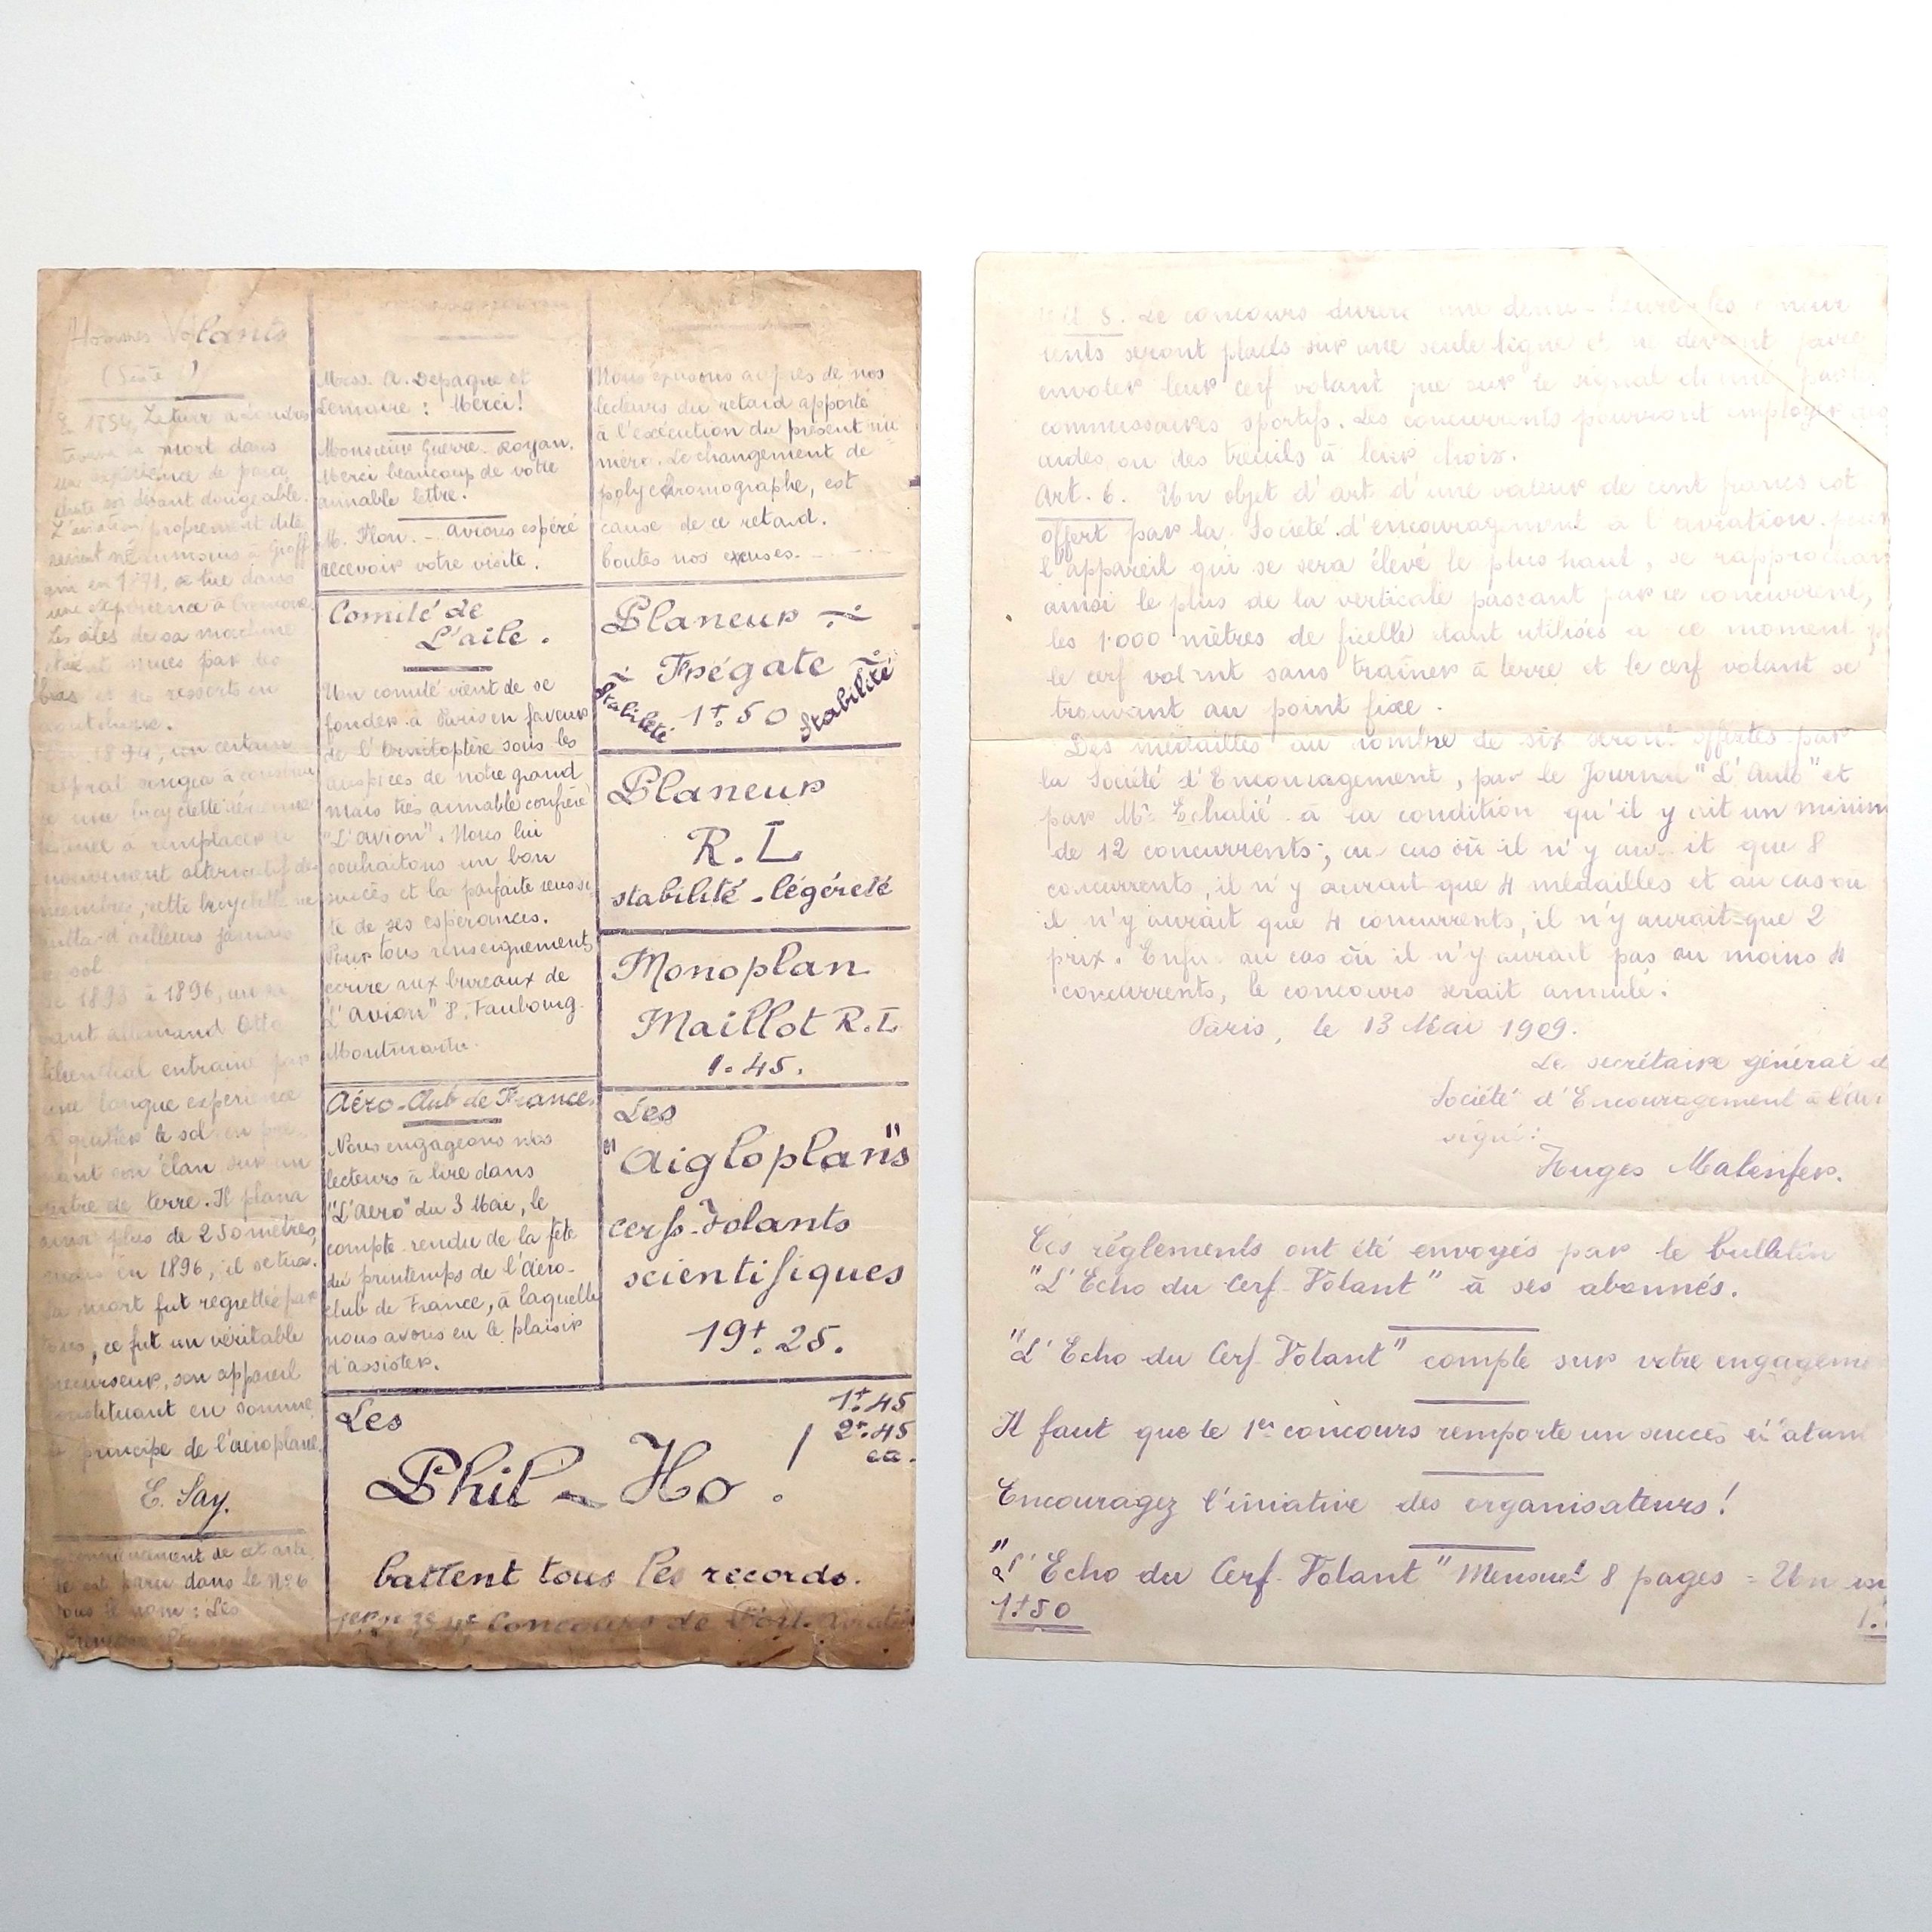 Hommes Volants
(Suite 1)
En 1854, Leturr à Londres
trouva la mort dans
une expérience de para
chute soi disant dirigeable.
L'aviation proprement dite
revient néanmoins à Groff
qui en 1871, se tue dans
une expérience à
Les ailes de sa machine
étaient mues par des
bras et des ressorts en
caoutchouc.
En 1894, un certain
songea à construire
une bicyclette aérienne
destinée à remplacer le
mouvement alternatif des
membres, cette bicyclette ne
quitta d'ailleurs jamais
le sol
De 1893 à 1896, un sa
vant allemand Otto
Lilienthal entrainé par
une longue expérience
quitter le sol en pre
nant son élan sur un
tertre de terre. Il plana
ainsi plus de 250 mètres,
mais en 1896, il se tua.
Sa mort fut regrettée par
tous, ce fut un véritable
précurseur, son appareil
constituant en somme
le principe de l'aéroplane.
E. Say.
commencement de cet arti
cle est paru dans le No 6
sous le nom : Les
Mess. A. Depaque et
Lemaire : Merci!
Monsieur Guerre. Royan.
Merci beaucoup de votre
aimable lettre.
M. Flon. - Avions espéré
recevoir votre visite.
Comité de
L'aile.
Un comité vient de se
fonder à Paris en faveur
de l'Ornitoptère sous les
auspices de notre grand
mais très aimable confrère
"L'avion". Nous lui
souhaitons un bon
succès et la parfaite réussi
te de ses espérances.
Pour tous renseignements
écrire aux bureaux de
"L'avion" 8. Faubourg-
Montmartre.
Aéro-Club de France.
Nous engageons nos
lecteurs à lire dans
"L'Aero" du 3 Mai, le
compte-rendu de la fête
du printemps de l'Aéro-
club de France, à laquelle
nous avons eu le plaisir
d'assister.
Nous excusons auprès de nos
lecteurs du retard apporté
à l'exécution du présent nu
méro. Le changement de
polychromographe, est
cause de ce retard.
Toutes nos excuses. - - -
Planeur
Frégate
Stabileté 1f. 50 Stabilité
Planeur
R. L
stabilité - légéreté
Monoplan
Maillot R. L
1. 45.
Les
"Aigloplans"
cerfs-Volants
scientifiques
19f. 25.
Les
Phil - Ho !
1f. 45
2f. 45
ea.
battent tous les records.
1er 2e 3e 4e Concours de Port-Aviation
Art 5. Le concours durera une demie-heure les concur
rents seront placés sur une seule ligne et ne devront faire
envoler leur cerf volant que sur le signal donné par les
commissaires sportifs. Les concurrents pourront employer des
aides ou des treuils à leur choix.
Art. 6. Un objet d'art d'une valeur de cent francs est
offert par la Société d'encouragement à l'aviation pour
l'appareil qui se sera élevé le plus haut, se rapprochant
ainsi le plus de la verticale passant par le concurrent,
les 1'000 mètres de ficelle étant utilisés à ce moment,
le cerf volant sans traîner à terre et le cerf volant se
trouvant au point fixe.
Des médailles au nombre de six seront offertes par
la Société d'Encouragement, par le Journal "L'Auto" et
par Mr Echalié à la condition qu'il y ait un minim
de 12 concurrents; au cas où il n'y aurait que 8
concurrents, il n'y aurait que 4 médailles et au cas où
il n'y aurait que 4 concurrents, il n'y aurait que 2
prix. Enfin au cas où il n'y aurait pas au moins 4
concurrents, le concours serait annulé.
Paris, le 13 Mai 1909.
Le secrétaire général d
Société d'Encouragement à l'Avi
signé:
Huges Malenfer.
Ces règlements ont été envoyés par le bulletin
"L'Echo du Cerf-Volant" à ses abonnés.
"L'Echo du Cerf-Volant" compte sur votre engageme
Il faut que le 1er concours remporte un succès éclatant
Encouragez l'iniative des organisateurs!
"L'Echo du Cerf-Volant" Mensuel 8 pages = Un an
1f50